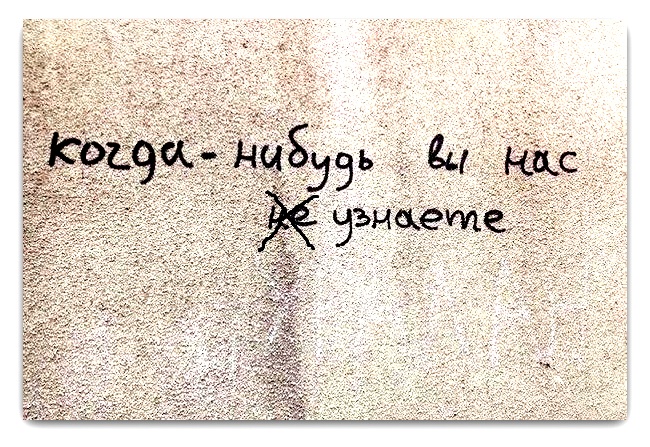 когда-нибудь вы нас
не узнаете